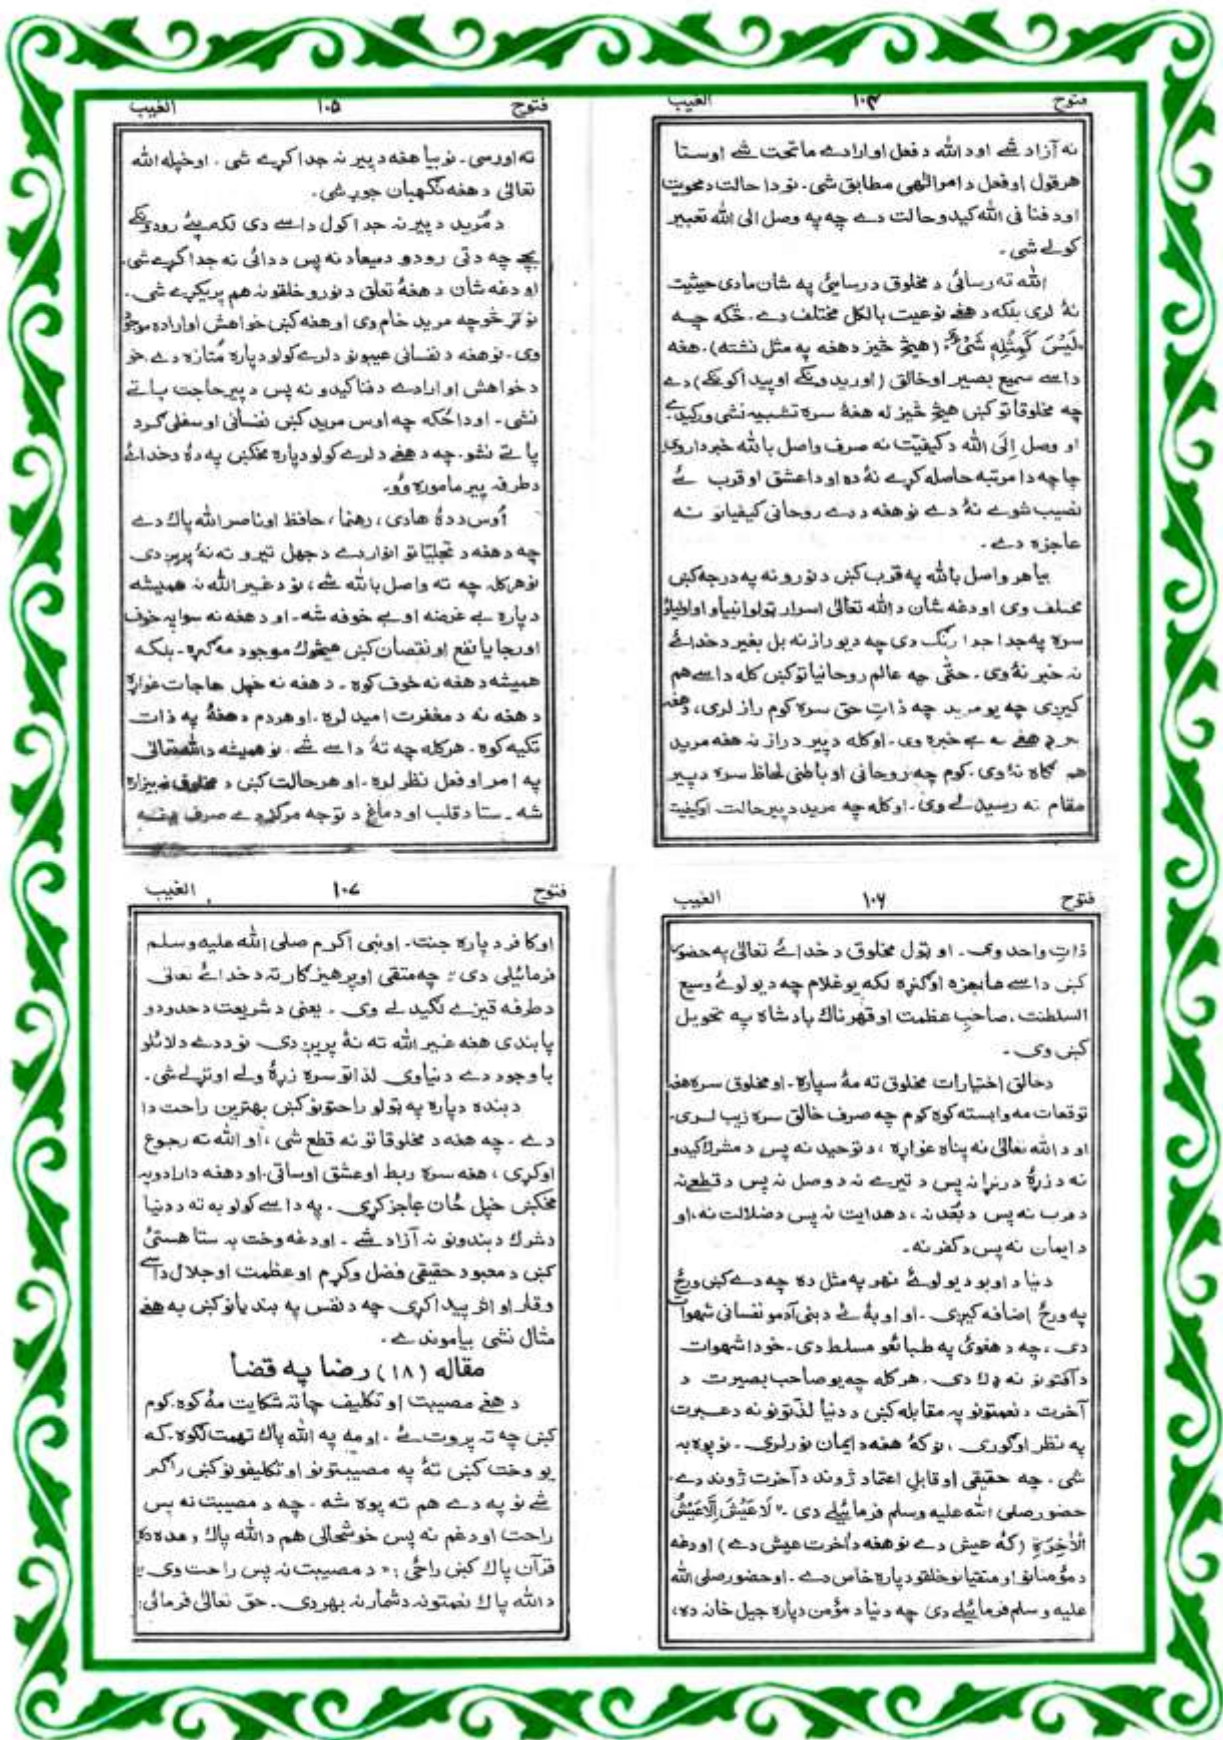 فتوح ۱۰۴ الغیب
نه آزاد شے اود الله د فعل اوارادے ماتحت شے اوستا
هر قول اوفعل د امرالٰهی مطابق شی۔ نودا حالت دمحویت
اود فنا فی الله کیدو حالت دے چه په وصل الی الله تعبیر
کولے شی۔
الله ته رسائی د مخلوق درسایئی په شان مادی حیثیت
نهٔ لری بلکه د هغے نوعیت بالکل مختلف دے۔ څکه چـه
لَیْسَ کَمِثْلِهٖ شَیْءٌ (هیڅ څیز دهغه په مثل نشته)۔ هغه
داسے سمیع بصیر اوخالق (اوریدونکے اوپیدا کونکے) دے
چه مخلوقاتو کښ هیڅ څیز له هغهٔ سره تشبیه نشی ورکیدے
او وصل اِلَی الله دکیفیّت نه صرف واصل بالله خبرداروی
چاچه دا مرتبه حاصله کړے نهٔ ده اودا عشق اوقرب ئے
نصیب شوے نهٔ دے نوهغه ددے روحانی کیفیاتو نـه
عاجزه دے۔
بیا هر واصل بالله په قرب کښ دنورو نه په درجه کښ
مختلف وی اودغه شان د الله تعالیٰ اسرار ټولو انبیاو اواولیاؤ
سره په جدا جدا رنګ دی چه دیو رازنه بل بغیر دخدائے
نه خبر نهٔ وی۔ حتّی چه عالم روحانیاتوکښ کله داسے هم
کیږی چه یو مرید چه ذاتِ حق سره کوم راز لری، دهغه
پیر هغے نه بے خبره وی۔ اوکله دپیر دراز نه هغه مرید
هم آگاه نهٔ وی۔ کوم چه روحانی اوباطنی لحاظ سره دپیر
مقام ته رسیدلے وی۔ اوکله چه مرید دپیرحالت اوکیفیت
فتوح ۱۰۵ الغیب
ته اورسی۔ نوبیا هغه دپیر نه جدا کړے شی۔ اوخپله الله
تعالیٰ د هغه نگهبان جوړ شی۔
د مُرید دپیر نه جدا کول داسے دی لکه پئے رودونکے
بچے چه دتی رودو دمیعاد نه پس ددائی نه جدا کړے شی۔
اودغه شان د هغهٔ تعلق دنورو خلقونه هم پریکړے شی۔
نوتر څوچه مرید خام وی اوهغه کښ خواهش اواراده موجود
وی۔ نوهغه د نفسانی عیبونو دلرے کولو دپاره مُتازه دے۔ خو
دخواهش اوارادے دفنا کیدو نه پس دپیر حاجت پاتے
نشی۔ اوداځکه چه اوس مرید کښ نفسانی اوسفلی گـرد
پاتے نشو۔ چه د هغے دلرے کولو دپاره مخکښ په دهٔ دخدائے
دطرفه پیر مامورہ وؤ۔
اُوس ددهٔ هادی، رهنما، حافظ اوناصر الله پاک دے
چه دهغه د تجلیّاتو انواردے دجهل تیرو ته نهٔ پریږدی
نوهرکله چه ته واصل بالله شے، نود غیر الله نه همیشه
دپاره بے غرضه اوبے خوفه شه۔ اود هغه نه سوا په خوف
اورجا یا نفع اونقصان کښ هیڅوک موجود مه گنړه۔ بلکـه
همیشه د هغه نه خوف کوه۔ د هغه نه خپل حاجات غواړه
د هغه نه د مغفرت امید لره۔ او هردم دهغهٔ په ذات
تکیه کوه۔ هرکله چه تهٔ داسے شے۔ نو همیشه د الله تعالیٰ
په امر اوفعل نظر لره۔ او هرحالت کښ د مخلوق نه بیزاره
شه۔ ستا دقلب اودماغ د توجه مرکز دے صرف هغـه
فتوح ۱۰۶ الغیب
ذاتِ واحد وی۔ او ټول مخلوق د خدائے تعالیٰ په حضور
کښ داسے عاجزه اوگنړه لکه یوغلام چه دیو لوئے وسیع
السلطنت، صاحبِ عظمت اوقهرناک بادشاه په تحویل
کښ وی۔
دخالق اختیارات مخلوق ته مهٔ سپاره۔ اومخلوق سره هغه
توقعات مه وابسته کوه کوم چه صرف خالق سره زیب لـری۔
اود الله تعالیٰ نه پناه غواړه، دتوحید نه پس د مشرک کیدو
نه دزړهٔ درنړا نه پس د تیرے نه دوصل نه پس دقطع نه
دقرب نه پس دبُعد نه، دهدایت نه پس دضلالت نه، او
دایمان نه پس دکفر نه۔
دنیا د اوبو دیولوئے نهر په مثل ده چه دے کښ ورځ
په ورځ اضافه کیږی۔ او اوبهٔ ئے دبنی آدمو نفسانی شهوات
دی، چه دهغوئ په طبائعو مسلط دی۔ خو دا شهوات
دآفتونو نه ډک دی۔ هرکله چه یو صاحب بصیرت د
آخرت دنعمتونو په مقابله کښ د دنیا لذّتونو نه دعبـرت
په نظر اوگوری، نوکهٔ هغه دایمان نورلری۔ نوپوه به
شی۔ چه حقیقی اوقابلِ اعتماد ژوند دآخرت ژوند دے۔
حضور صلی الله علیه وسلم فرمائیلے دی۔ "لَا عَیْشَ اِلَّا عَیْشُ
الْاٰخِرَةِ (کهٔ عیش دے نوهغه دآخرت عیش دے) اودغه
دمؤمنانو اومتقیانو خلقو دپاره خاص دے۔ اوحضور صلی الله
علیه وسلم فرمائیلے دی چه دنیا د مؤمن دپاره جیل خانه ده،
فتوح ۱۰۷ الغیب
اوکافر دپاره جنت۔ اونبی اکرم صلی الله علیه وسلم
فرمائیلی دی: چه متقی اوپرهیزگار ته دخدائے تعالیٰ
دطرفه قیزے لگیدلے وی۔ یعنی دشریعت دحدودو
پابندی هغه غیر الله ته نهٔ پریږدی۔ نوددے دلائلو
باوجود دے دنیاوی لذاتو سره زړهٔ ولے اوتړلے شی۔
دبنده دپاره په ټولو راحتونوکښ بهترین راحت دا
دے۔ چه هغه د مخلوقاتو نه قطع شی، او الله ته رجوع
اوکړی، هغه سره ربط اوعشق اوساتی۔ اودهغه دارادوپه
مخکښ خپل ځان عاجز کړی۔ په داسے کولو به ته ددنیا
دشرک دبندونو نه آزاد شے۔ اودغه وخت به ستا هستئ
کښ د معبود حقیقی فضل وکرم او عظمت اوجلال داسے
وقار او اثر پیدا کړی چه دنفس په بندیانوکښ به هغے
مثال نشی بیا موندے۔
مقاله (۱۸) رضا په قضا
د هغے مصیبت او تکلیف چاته شکایت مهٔ کوه۔ کوم
کښ چه ته پروت ئے۔ اومه په الله پاک تهمت لگوه۔ کـه
یو وخت کښ تهٔ په مصیبتونو او تکلیفونوکښ راگیر
شے نو په دے هم ته پوه شه۔ چه د مصیبت نه پس
راحت اود غم نه پس خوشحالی هم دالله پاک وعده ده
قرآن پاک کښ راځی: "د مصیبت نه پس راحت وی"
دالله پاک نعمتونه دشمار نه بهر دی۔ حق تعالیٰ فرمائی: